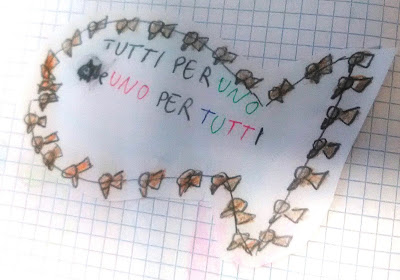 TUTTI PER UNO
e UNO PER TUTTI